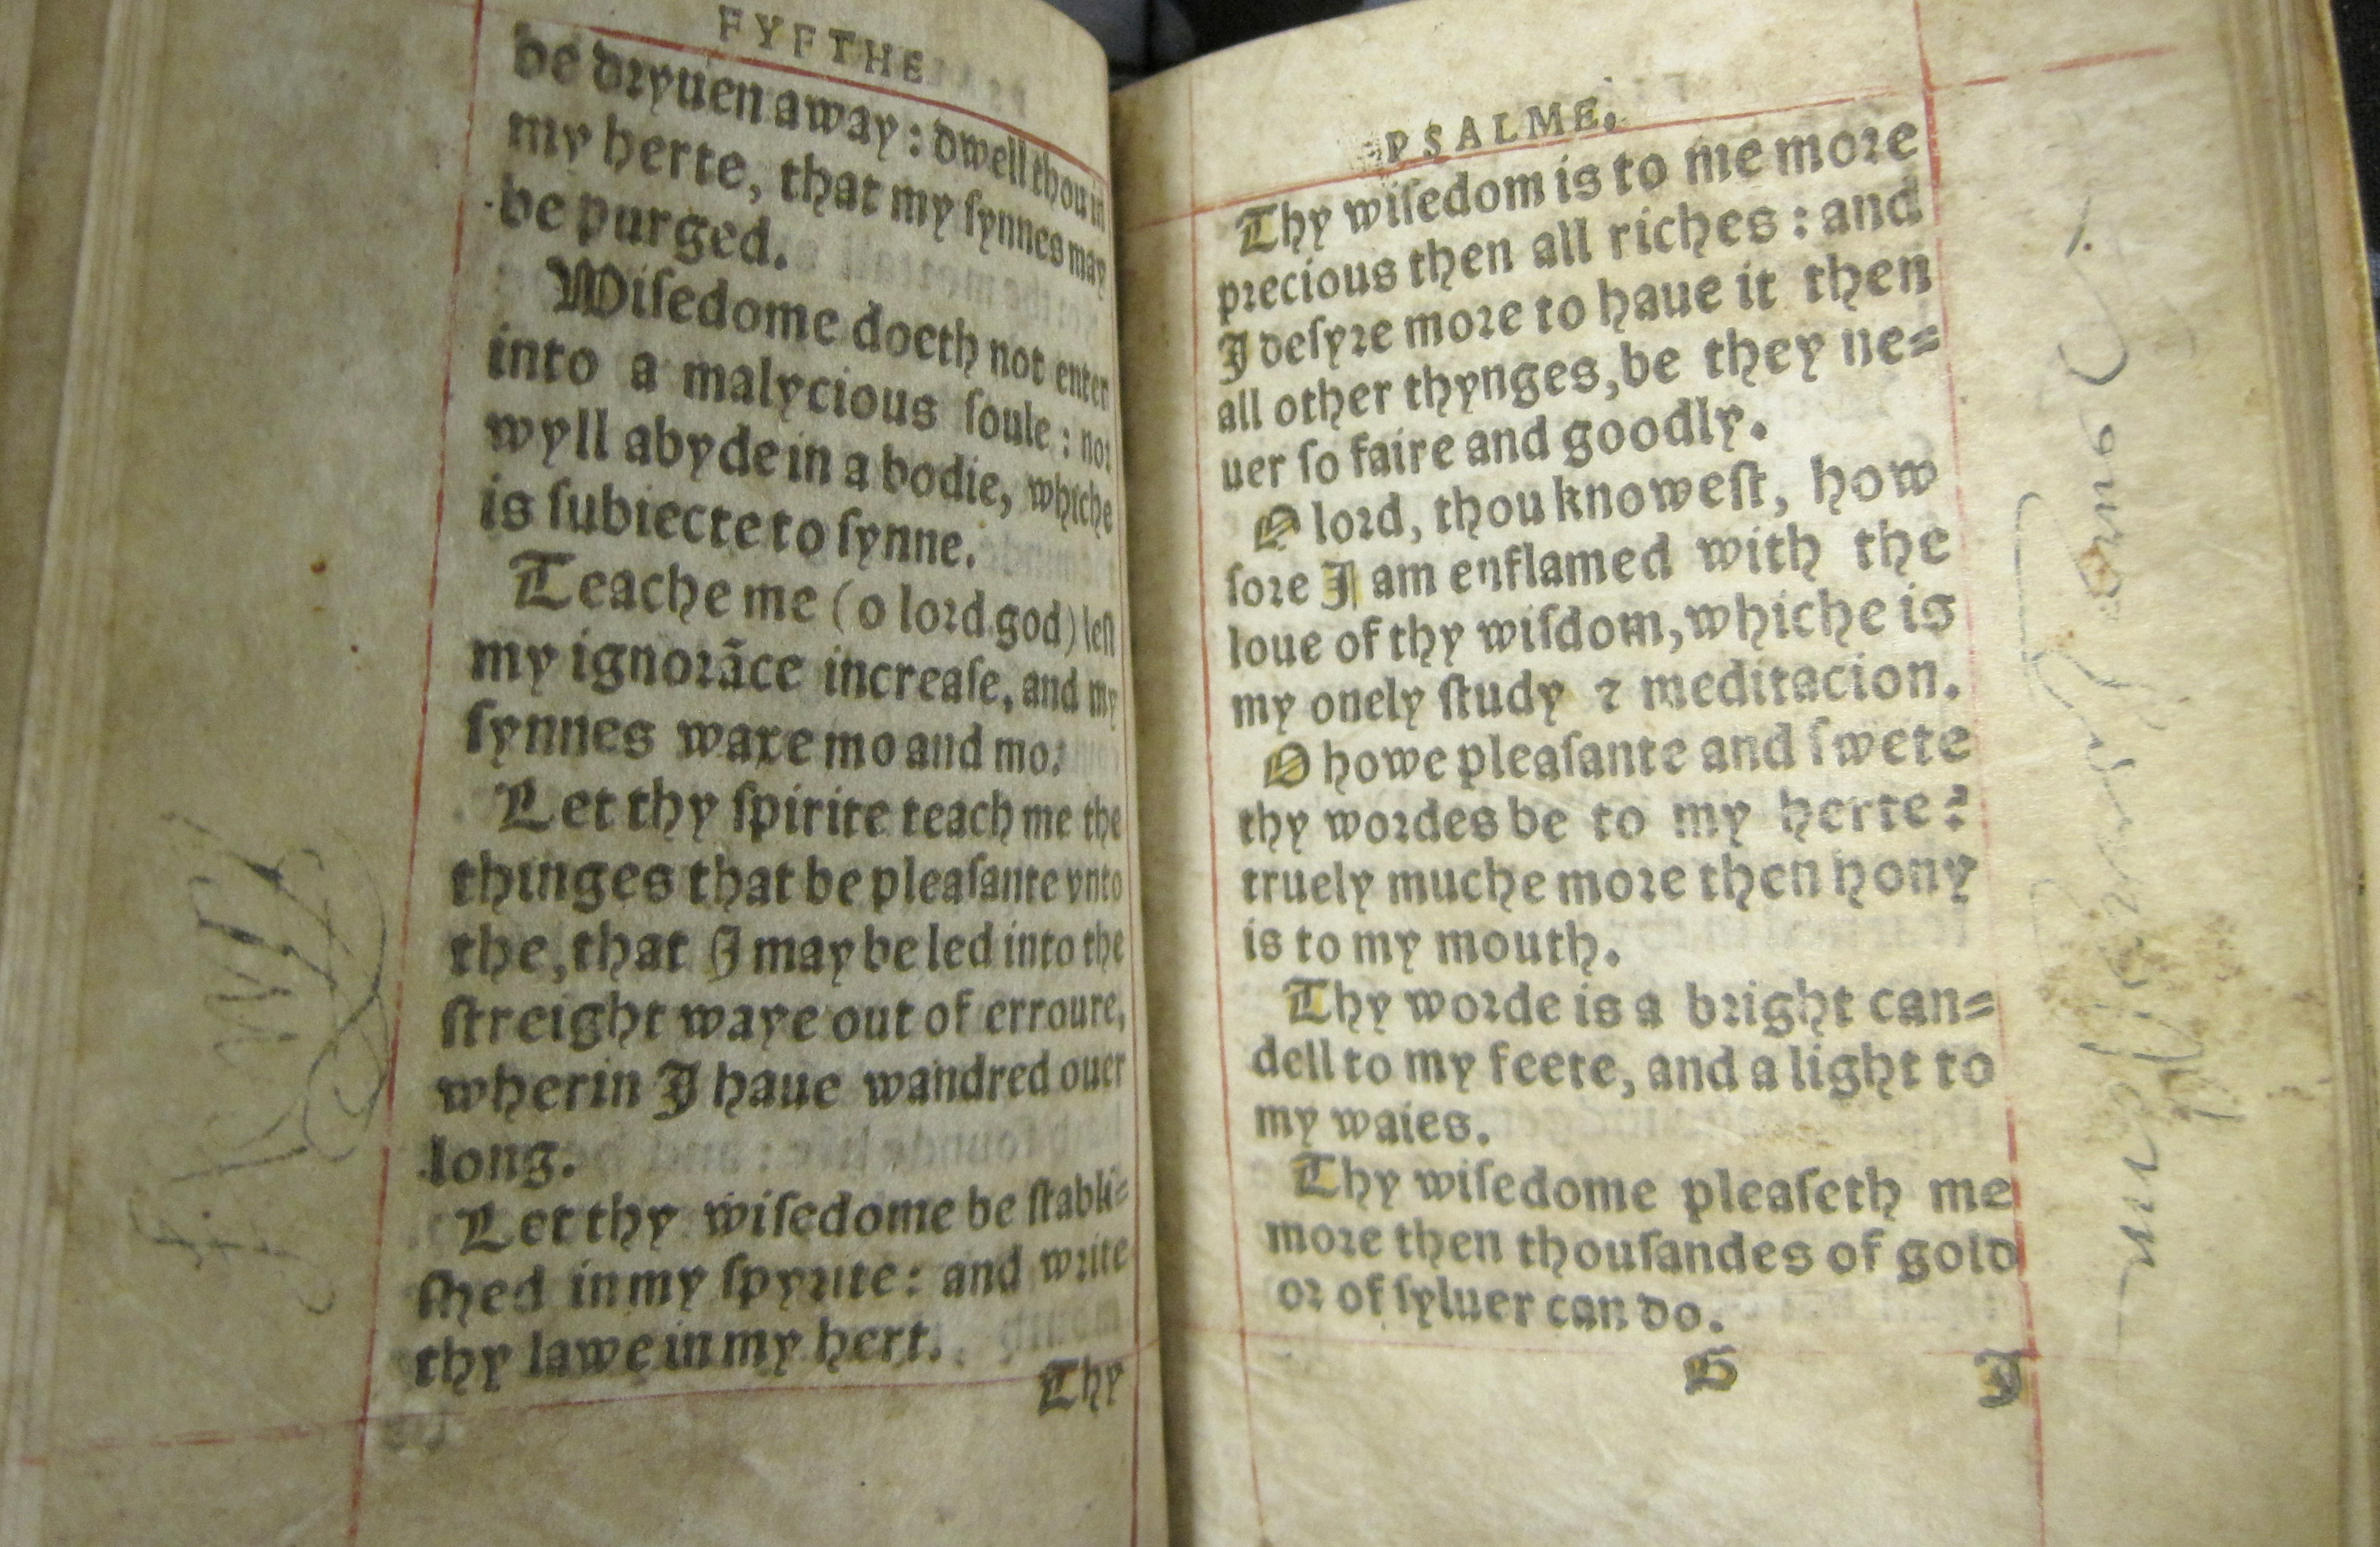 FYFTHE
be dryuen away : dwell thou in
my herte, that my ſynnes may
be purged.
Wiſedome doeth not enter
into a malycious ſoule : nor
wyll abyde in a bodie, whiche
is ſubiecte to ſynne.
Teache me (o lord god) leſt
my ignorãce increaſe, and my
ſynnes waxe mo and mo.
Let thy ſpirite teach me the
thinges that be pleaſante vnto
the, that I may be led into the
ſtreight waye out of erroure,
wherin I haue wandred ouer
long.
Let thy wiſedome be ſtabli=
ſhed in my ſpyrite : and write
thy lawe in my hert.
Thy
PSALME.
Thy wiſedom is to me more
precious then all riches : and
I deſyre more to haue it then
all other thynges, be they ne=
uer ſo faire and goodly.
O lord, thou knoweſt, how
ſore I am enflamed with the
loue of thy wiſdom, whiche is
my onely ſtudy ⁊ meditacion.
O howe pleaſante and ſwete
thy wordes be to my herte?
truely muche more then hony
is to my mouth.
Thy worde is a bright can=
dell to my feete, and a light to
my waies.
Thy wiſedome pleaſeth me
more then thouſandes of gold
or of ſyluer can do.
G I